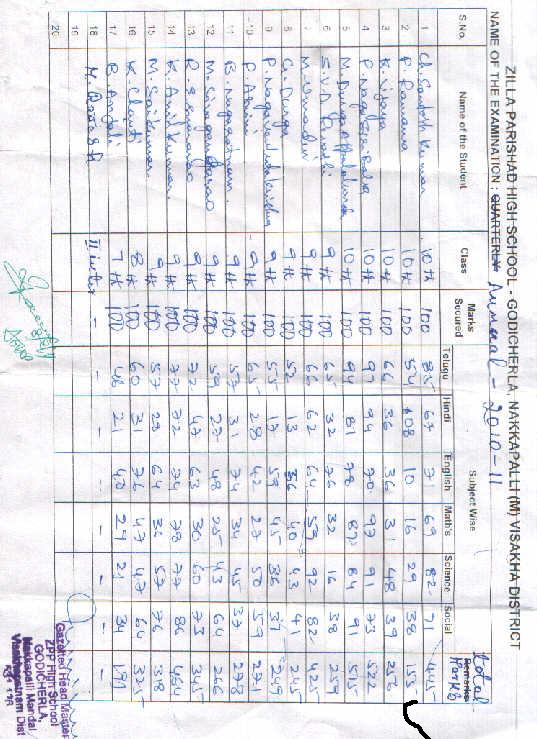 ZILLA PARISHAD HIGH SCHOOL - GODICHERLA, NAKKAPALLI (M) VISAKHA DISTRICT
NAME OF THE EXAMINATION : QUARTERLY Annual - 2010-11
S.No. Name of the Student Class Marks Secured Subject Wise Total Marks Remarks
Telugu Hindi English Maths Science Social
1 Ch. Santosh Kumar 10th 100 85 67 71 69 82 71 445
2 P. Ramana 10th 100 54 08 10 16 29 38 155
3 K. Vijaya 10th 100 66 36 36 31 48 39 256
4 P. Naga See Balaji 10th 100 97 94 70 97 91 73 522
5 M. Durga 10th 100 94 81 78 87 84 91 515
6 S.V.D. 9th 100 65 32 76 32 16 38 259
7 M. Umadevi 9th 100 66 62 64 59 92 82 425
8 G. Durga 9th 100 52 13 56 40 43 41 245
9 P. Naga 9th 100 55 17 59 45 36 37 249
10 P. 9th 100 65 28 42 27 50 59 271
11 B. Nagaratnam 9th 100 57 31 74 34 45 37 278
12 M. Sivaganga Rao 9th 100 59 27 48 25 43 64 266
13 R. 9th 100 72 47 63 30 60 73 345
14 K. Anil Kumar 9th 100 77 72 74 78 77 86 464
15 M. Sai Kumar 9th 100 57 29 64 36 53 76 318
16 K. Chanti 8th 100 60 31 76 47 47 64 325
17 B. Anjali 7th 100 48 21 40 29 21 34 191
18 M. II inter - - - - - - - -
19
20
Gazetted Head Master
ZPP High School
GODICHERLA,
Nakkapalli Mandal
Visakhapatnam Dist